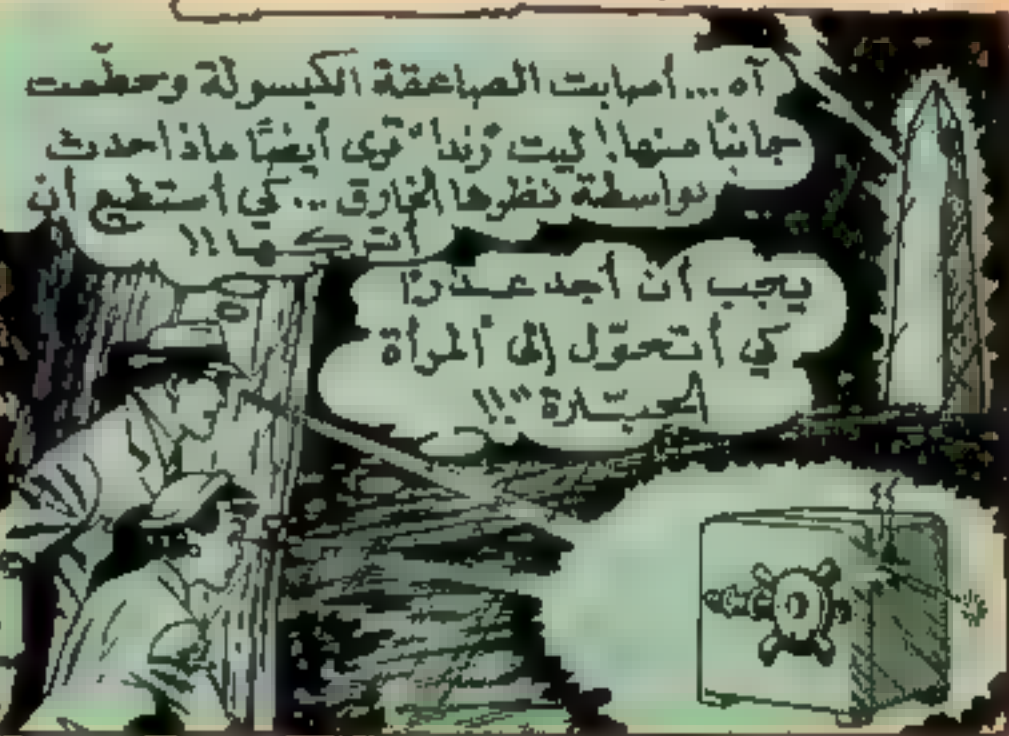 آه... أصابت الصاعقة الكبسولة وحطّمت
جانباً منها! ليت "رندا" ترى أيضًا ماذا حدث
بواسطة نظرها الخارق... كي أستطيع أن
أتركها!!
يجب أن أجد عذرًا
كي أتحوّل إلى "المرأة
الجبّارة"!!